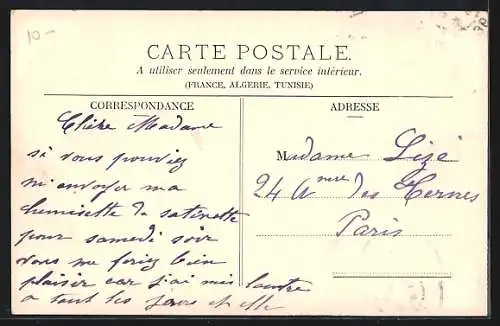 10-
CARTE POSTALE.
A utiliser seulement dans le service intérieur.
(FRANCE, ALGERIE, TUNISIE)
CORRESPONDANCE
Chère Madame
si vous pouviez
m'envoyer ma
chemisette de satinette
pour samedi soir
vous me feriez bien
plaisir car j'ai mis l'autre
a tout les jours et elle
ADRESSE
Madame Lizé
24 Avnue des Ternes
Paris